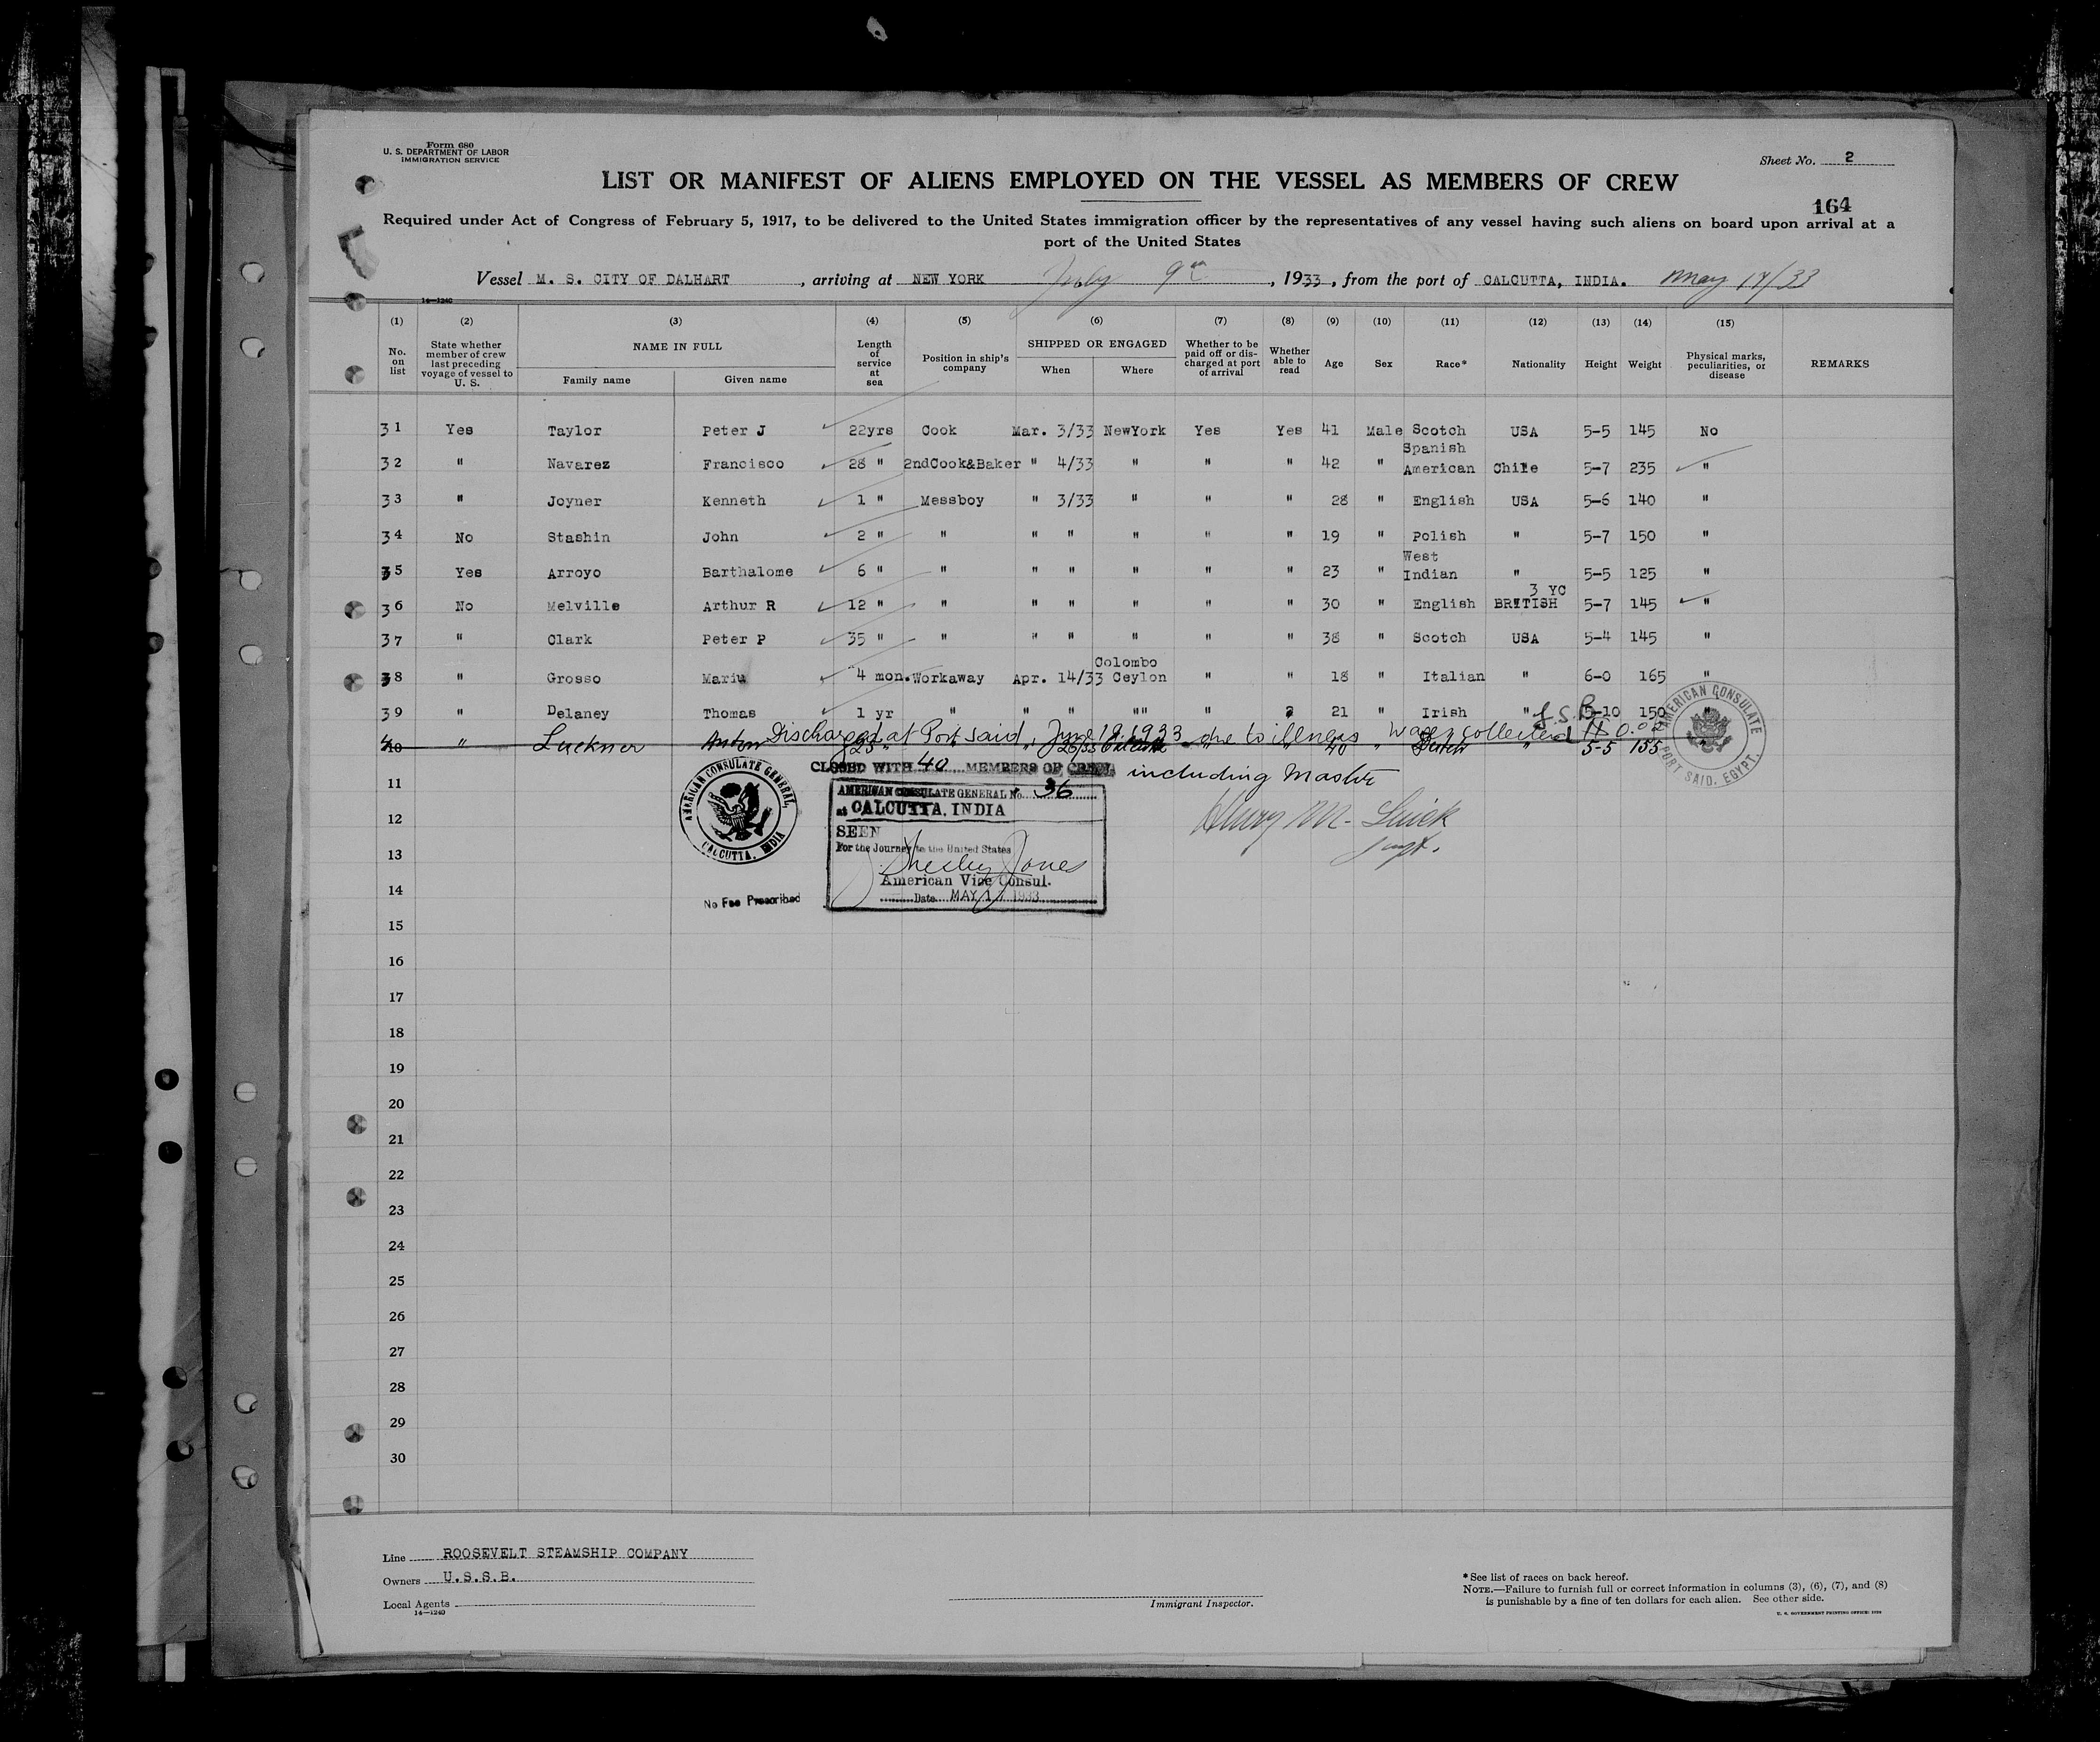 Form 680
U. S. DEPARTMENT OF LABOR
IMMIGRATION SERVICE
Sheet No. 2
LIST OR MANIFEST OF ALIENS EMPLOYED ON THE VESSEL AS MEMBERS OF CREW
164
Required under Act of Congress of February 5, 1917, to be delivered to the United States immigration officer by the representatives of any vessel having such aliens on board upon arrival at a
port of the United States
Vessel M. S. CITY OF DALHART , arriving at NEW YORK July 9th , 1933 , from the port of CALCUTTA, INDIA. May 17/33
14—1240
(1) (2) (3) (4) (5) (6) (7) (8) (9) (10) (11) (12) (13) (14) (15)
No. on list State whether member of crew last preceding voyage of vessel to U. S. NAME IN FULL Family name Given name Length of service at sea Position in ship's company SHIPPED OR ENGAGED When Where Whether to be paid off or discharged at port of arrival Whether able to read Age Sex Race* Nationality Height Weight Physical marks, peculiarities, or disease REMARKS
31 Yes Taylor Peter J 22yrs Cook Mar. 3/33 NewYork Yes Yes 41 Male Scotch USA 5-5 145 No
32 " Navarez Francisco 28 " 2ndCook&Baker " 4/33 " " " 42 " Spanish American Chile 5-7 235 "
33 " Joyner Kenneth 1 " Messboy " 3/33 " " " 28 " English USA 5-6 140 "
34 No Stashin John 2 " " " " " " " 19 " Polish " 5-7 150 "
35 Yes Arroyo Barthalome 6 " " " " " " " 23 " West Indian " 5-5 125 "
36 No Melville Arthur R 12 " " " " " " " 30 " English 3 YC BRITISH 5-7 145 "
37 " Clark Peter P 35 " " " " " " " 38 " Scotch USA 5-4 145 "
38 " Grosso Mariu 4 mon. Workaway Apr. 14/33 Colombo Ceylon " " 18 " Italian " 6-0 165 "
39 " Delaney Thomas 1 yr " " " "" " 21 " Irish " 5-10 150 "
Discharged at Port Said, June 19, 1933 due to illness Wages collected
40 " Luckner Anton 25 " " " " " 40 " Dutch " 5-5 155 "
CLOSED WITH 40 MEMBERS OF CREW including Master
11
12
13
14
15
16
17
18
19
20
21
22
23
24
25
26
27
28
29
30
AMERICAN CONSULATE GENERAL,
CALCUTTA, INDIA
No Fee Prescribed
AMERICAN CONSULATE GENERAL No. 36
at CALCUTTA, INDIA
SEEN
For the Journey to the United States
American Vice Consul.
Date MAY 17 1933
AMERICAN CONSULATE
PORT SAID, EGYPT.
Line ROOSEVELT STEAMSHIP COMPANY
Owners U.S.S.B.
Local Agents
14—1240
Immigrant Inspector.
* See list of races on back hereof.
NOTE.—Failure to furnish full or correct information in columns (3), (6), (7), and (8)
is punishable by a fine of ten dollars for each alien. See other side.